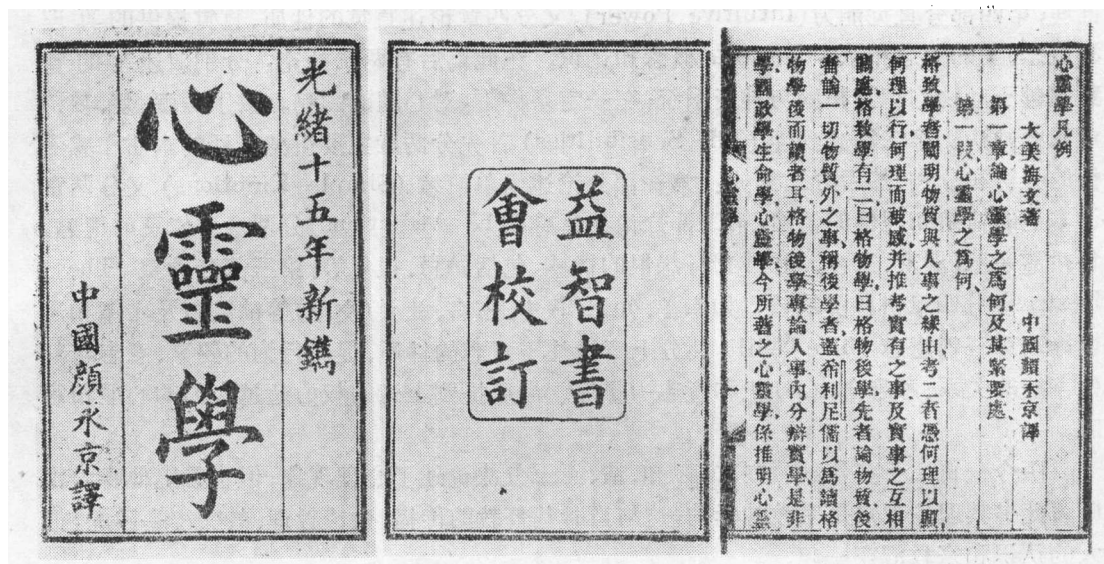 光緒十五年新鐫
心靈學
中國顏永京譯
益智書
會校訂
心靈學凡例
大美海文著 中國顏永京譯
第一章論心靈學之爲何及其緊要處
第一段心靈學之爲何
格致學者闡明物質與人事之緣由考二者憑何理以顯
何理以行何理而被感并推考實有之事及實事之互相
關處格致學有二曰格物學曰格物後學先者論物質後
者論一切物質外之事稱後學者蓋希利尼儒以爲讀格
物學後而讀者耳格物後學專論人事內分辯實學是非
學國政學生命學心靈學今所著之心靈學係推明心靈
心靈學